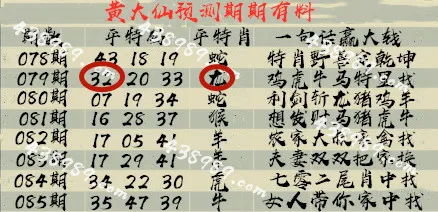 黄大仙预测期期有料
期数 平特码 平特肖 一句话赢大钱
078期 43 18 19 蛇 特肖野兽定乾坤
079期 32 20 33 龙 鸡虎牛马特里找
080期 07 19 34 蛇 利剑斩龙猪鸡羊
081期 16 28 37 猴 想发财
082期 17 05 41 羊 农家大
083期 17 29 41 羊 夫妻双双把家
084期 34 22 30 虎 七零二尾肖中找
085期 35 47 39 牛 女人带你家中找
438989.com